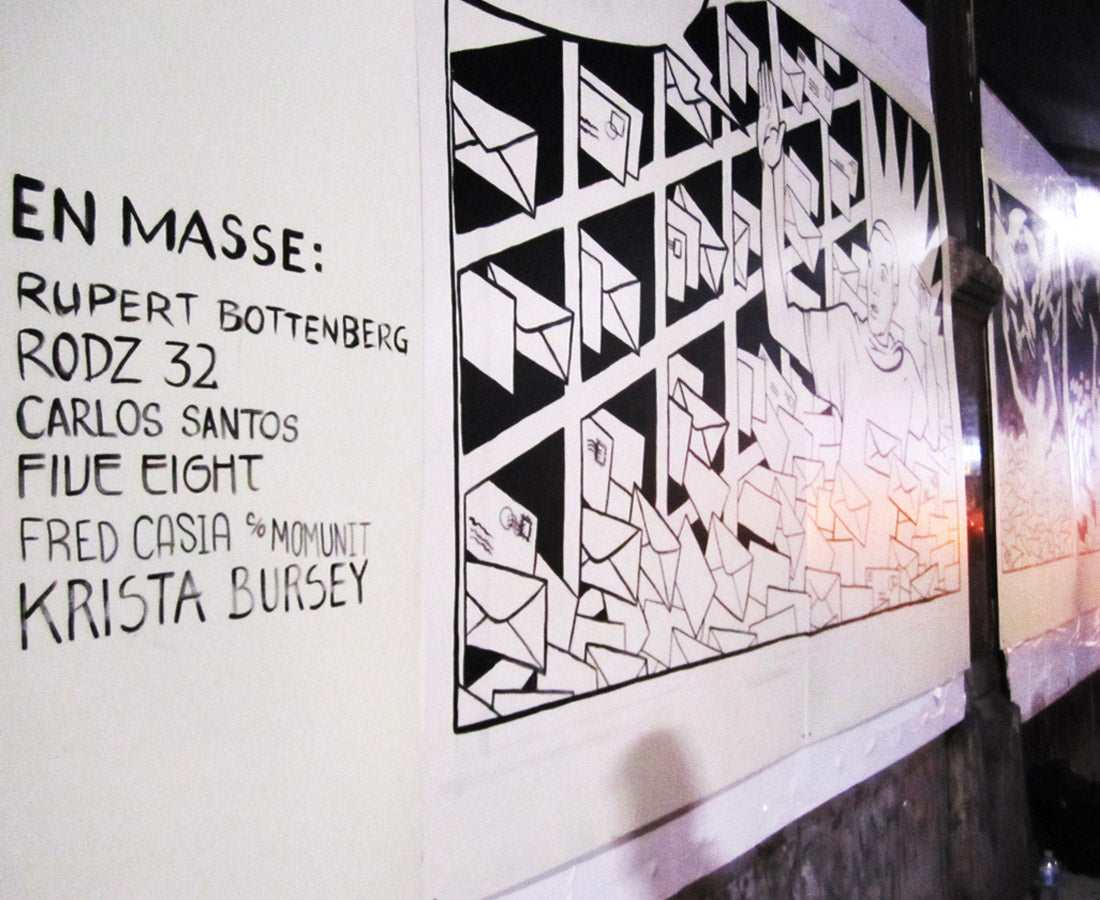 EN MASSE:
RUPERT BOTTENBERG
RODZ 32
CARLOS SANTOS
FIVE EIGHT
FRED CASIA c/o MOMUNIT
KRISTA BURSEY